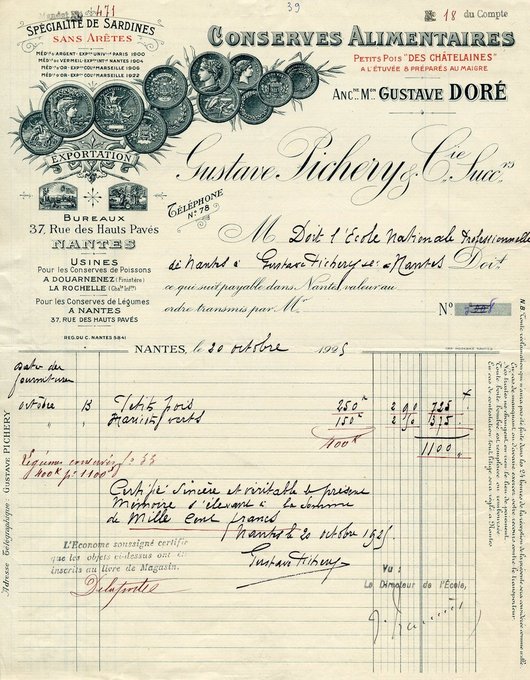 Mandat No 471
39
No 18 du Compte
SPÉCIALITÉ DE SARDINES
SANS ARÊTES
CONSERVES ALIMENTAIRES
PETITS POIS "DES CHÂTELAINES"
A L'ÉTUVÉE & PRÉPARÉS AU MAIGRE
ANCNE MON GUSTAVE DORÉ
EXPORTATION
Gustave Pichery & Cie, Succrs
TÉLÉPHONE
No 78
BUREAUX
37, Rue des Hauts Pavés
NANTES
USINES
Pour les Conserves de Poissons
A DOUARNENEZ (Finistère)
LA ROCHELLE (Chte Infre)
Pour les Conserves de Légumes
A NANTES
37, RUE DES HAUTS PAVÉS
REG. DU C. NANTES 5841
M Doit l'Ecole Nationale Professionnelle
de Nantes à Gustave Pichery & Cie à Nantes Doit
ce qui suit payable dans Nantes, valeur au
ordre transmis par Mr
No
NANTES, le 20 octobre 1925
Dates des
fournitures
octobre 13 Petits pois 250 K 2 90 725
" " Haricots verts 150 K 2 50 375
400 K 1100
Légumes conserves
400 K 1100
Certifié sincère et véritable le présent
Mémoire s'élevant à la somme
de Mille Cent francs
Nantes le 20 octobre 1925
Gustave Pichery
L'Econome soussigné certifie
que les objets ci-dessus ont été
inscrits au livre de Magasin.
Vu :
Le Directeur de l'École,
Adresse Télégraphique : GUSTAVE PICHERY